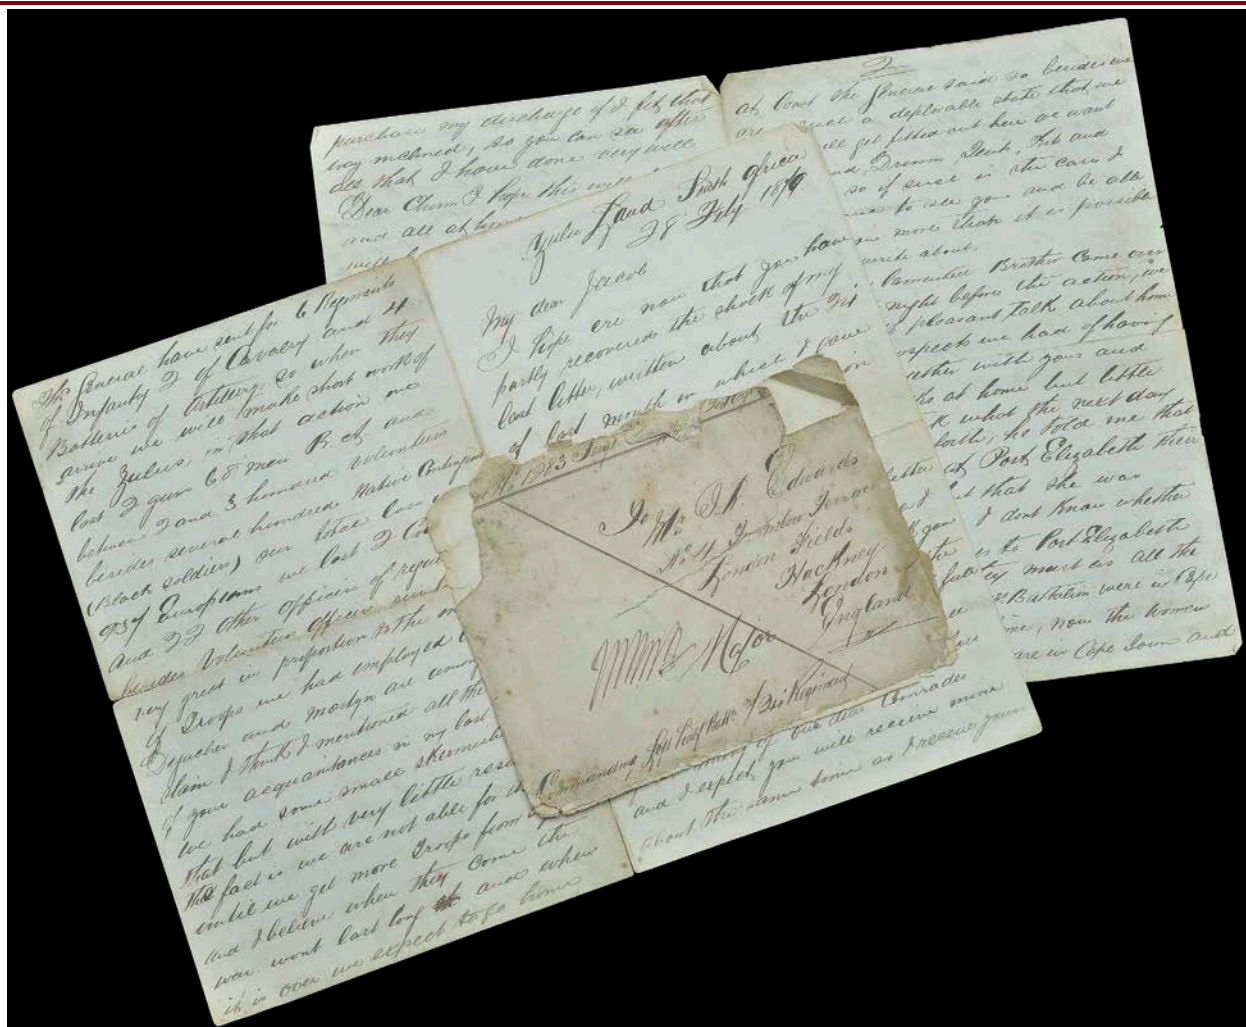 purchase my discharge if I felt that
way inclined, so you can see after
all that I have done very well
Dear Chum I hope this will
and all at home
2
at least the General said so besides we
are such a deplorable state that we
will get fitted out here we want
and, Drums, Tents, Kit and
so if such is the case I
to see you and be able
more than it is possible
write about.
lamented Brother came over
night before the action, we
pleasant talk about home
prospects we had of having
with you and
at home but little
what the next day
forth, he told me that
letter at Port Elizabeth their
but that she was
I dont know whether
to Port Elizabeth
must as all the
Battalion were in Cape
time, now the women
are in Cape Town and
Zulu Land South Africa
28 Feby 1879
My dear Jacob
I hope ere now that you have
partly recovered the shock of my
last letter, written about the 24
of last month in which I gave
The General have sent for 6 Regiments
of Infantry 2 of Cavalry and 4
Batteries of Artillery, so when they
arrive we will make short work of
the Zulus, in that action we
lost 2 guns 68 men R.A. and
between 2 and 3 hundred volunteers
besides several hundred Native Contingent
(Black soldiers) our total loss
937 Europeans we lost 2
and 22 other officers of
besides Volunteer officers
very great in proportion to the
of Troops we had employed
Degacher and Mostyn are among
slain I think I mentioned all the
of your acquaintances in my last
we have some small skirmishes
that but with very little
the fact is we are not able for
until we get more Troops from
and I believe when they come the
war wont last long and when
it is over we expect to go home
No 1943
To
Mr J. W. Edwards
No 4 Winslow Terrace
London Fields
Hackney
London
England
Major
Commanding 2/24 Regiment
many of our dear Comrades
and I expect you will receive mine
about the same time as I receive yours